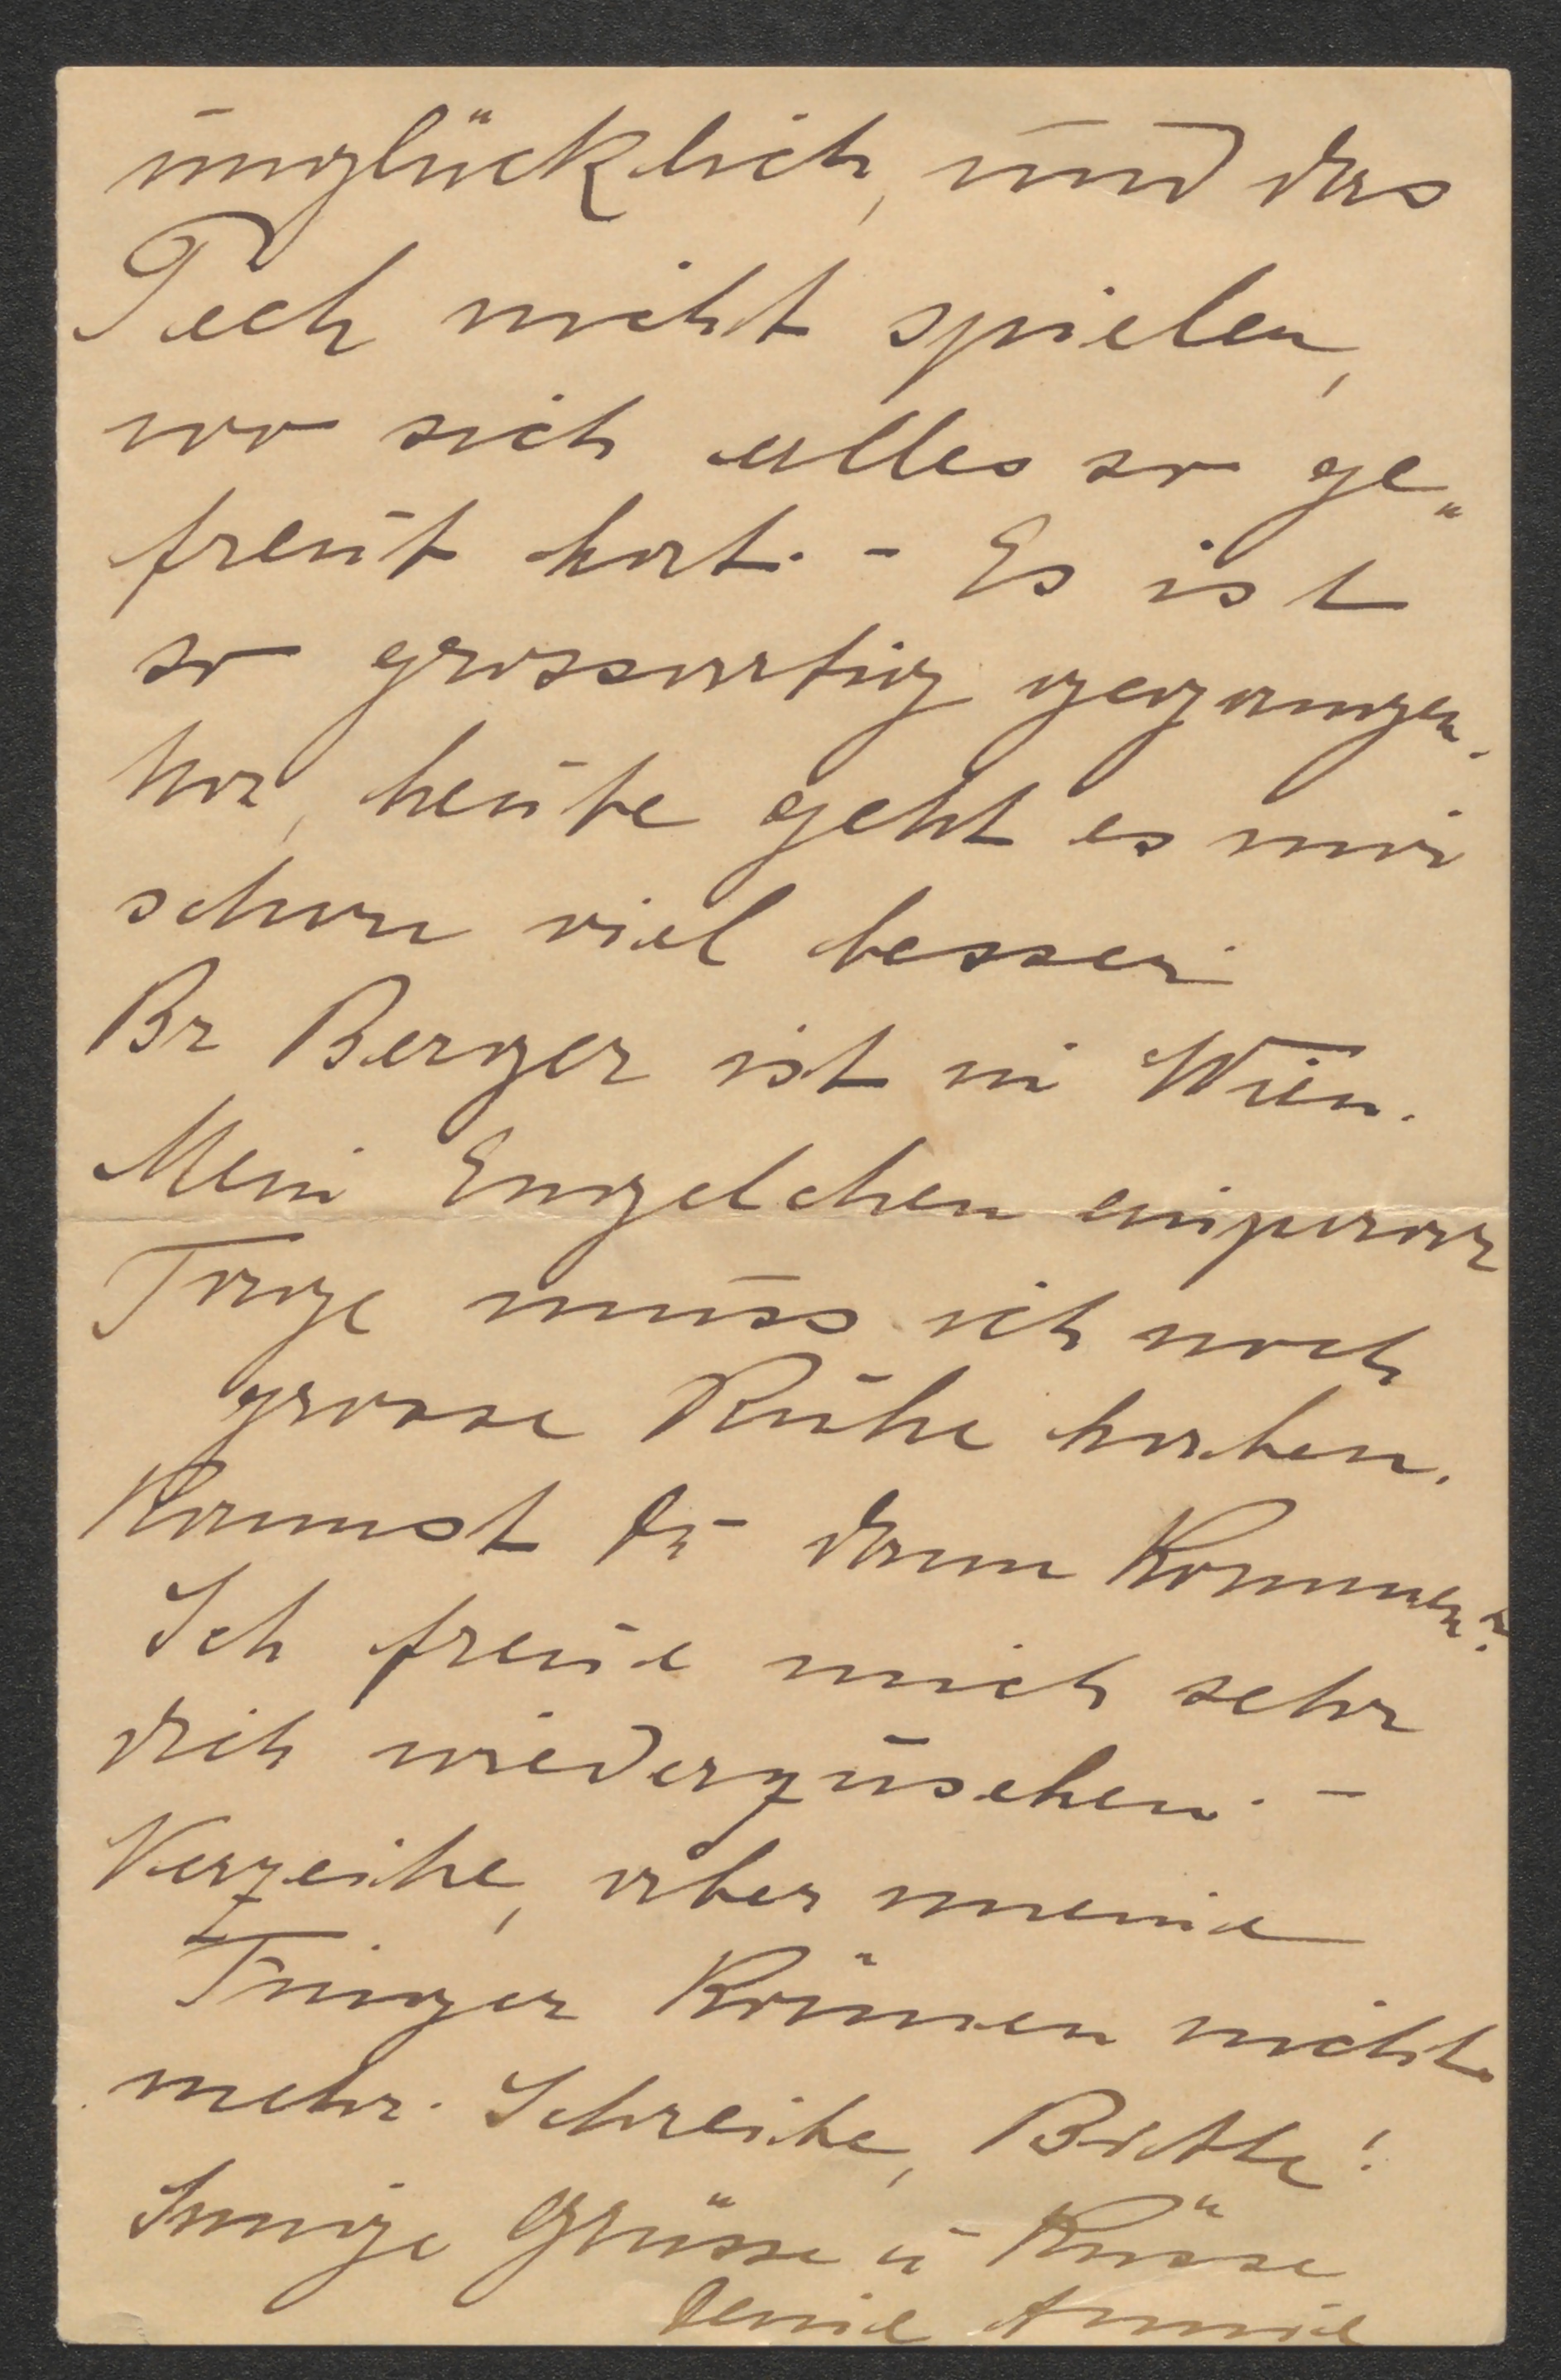 unglücklich, und das
Pech nicht spielen,
wo sich alles so ge„
freut hat. - Es ist
so grossartig gegangen.
Na, heute geht es mir
schon viel besser.
Br Berger ist in Wien.
Mein Engelchen einpaar
Tage muss ich noch
grosse Ruhe haben.
Kannst Du dann Kommen?
Ich freue mich sehr
dich wiederzusehen. -
Verzeihe, aber meine
Finger Können nicht
mehr. Schreibe, Bitte!
Innige Grüsse u Küsse
Deine Annie